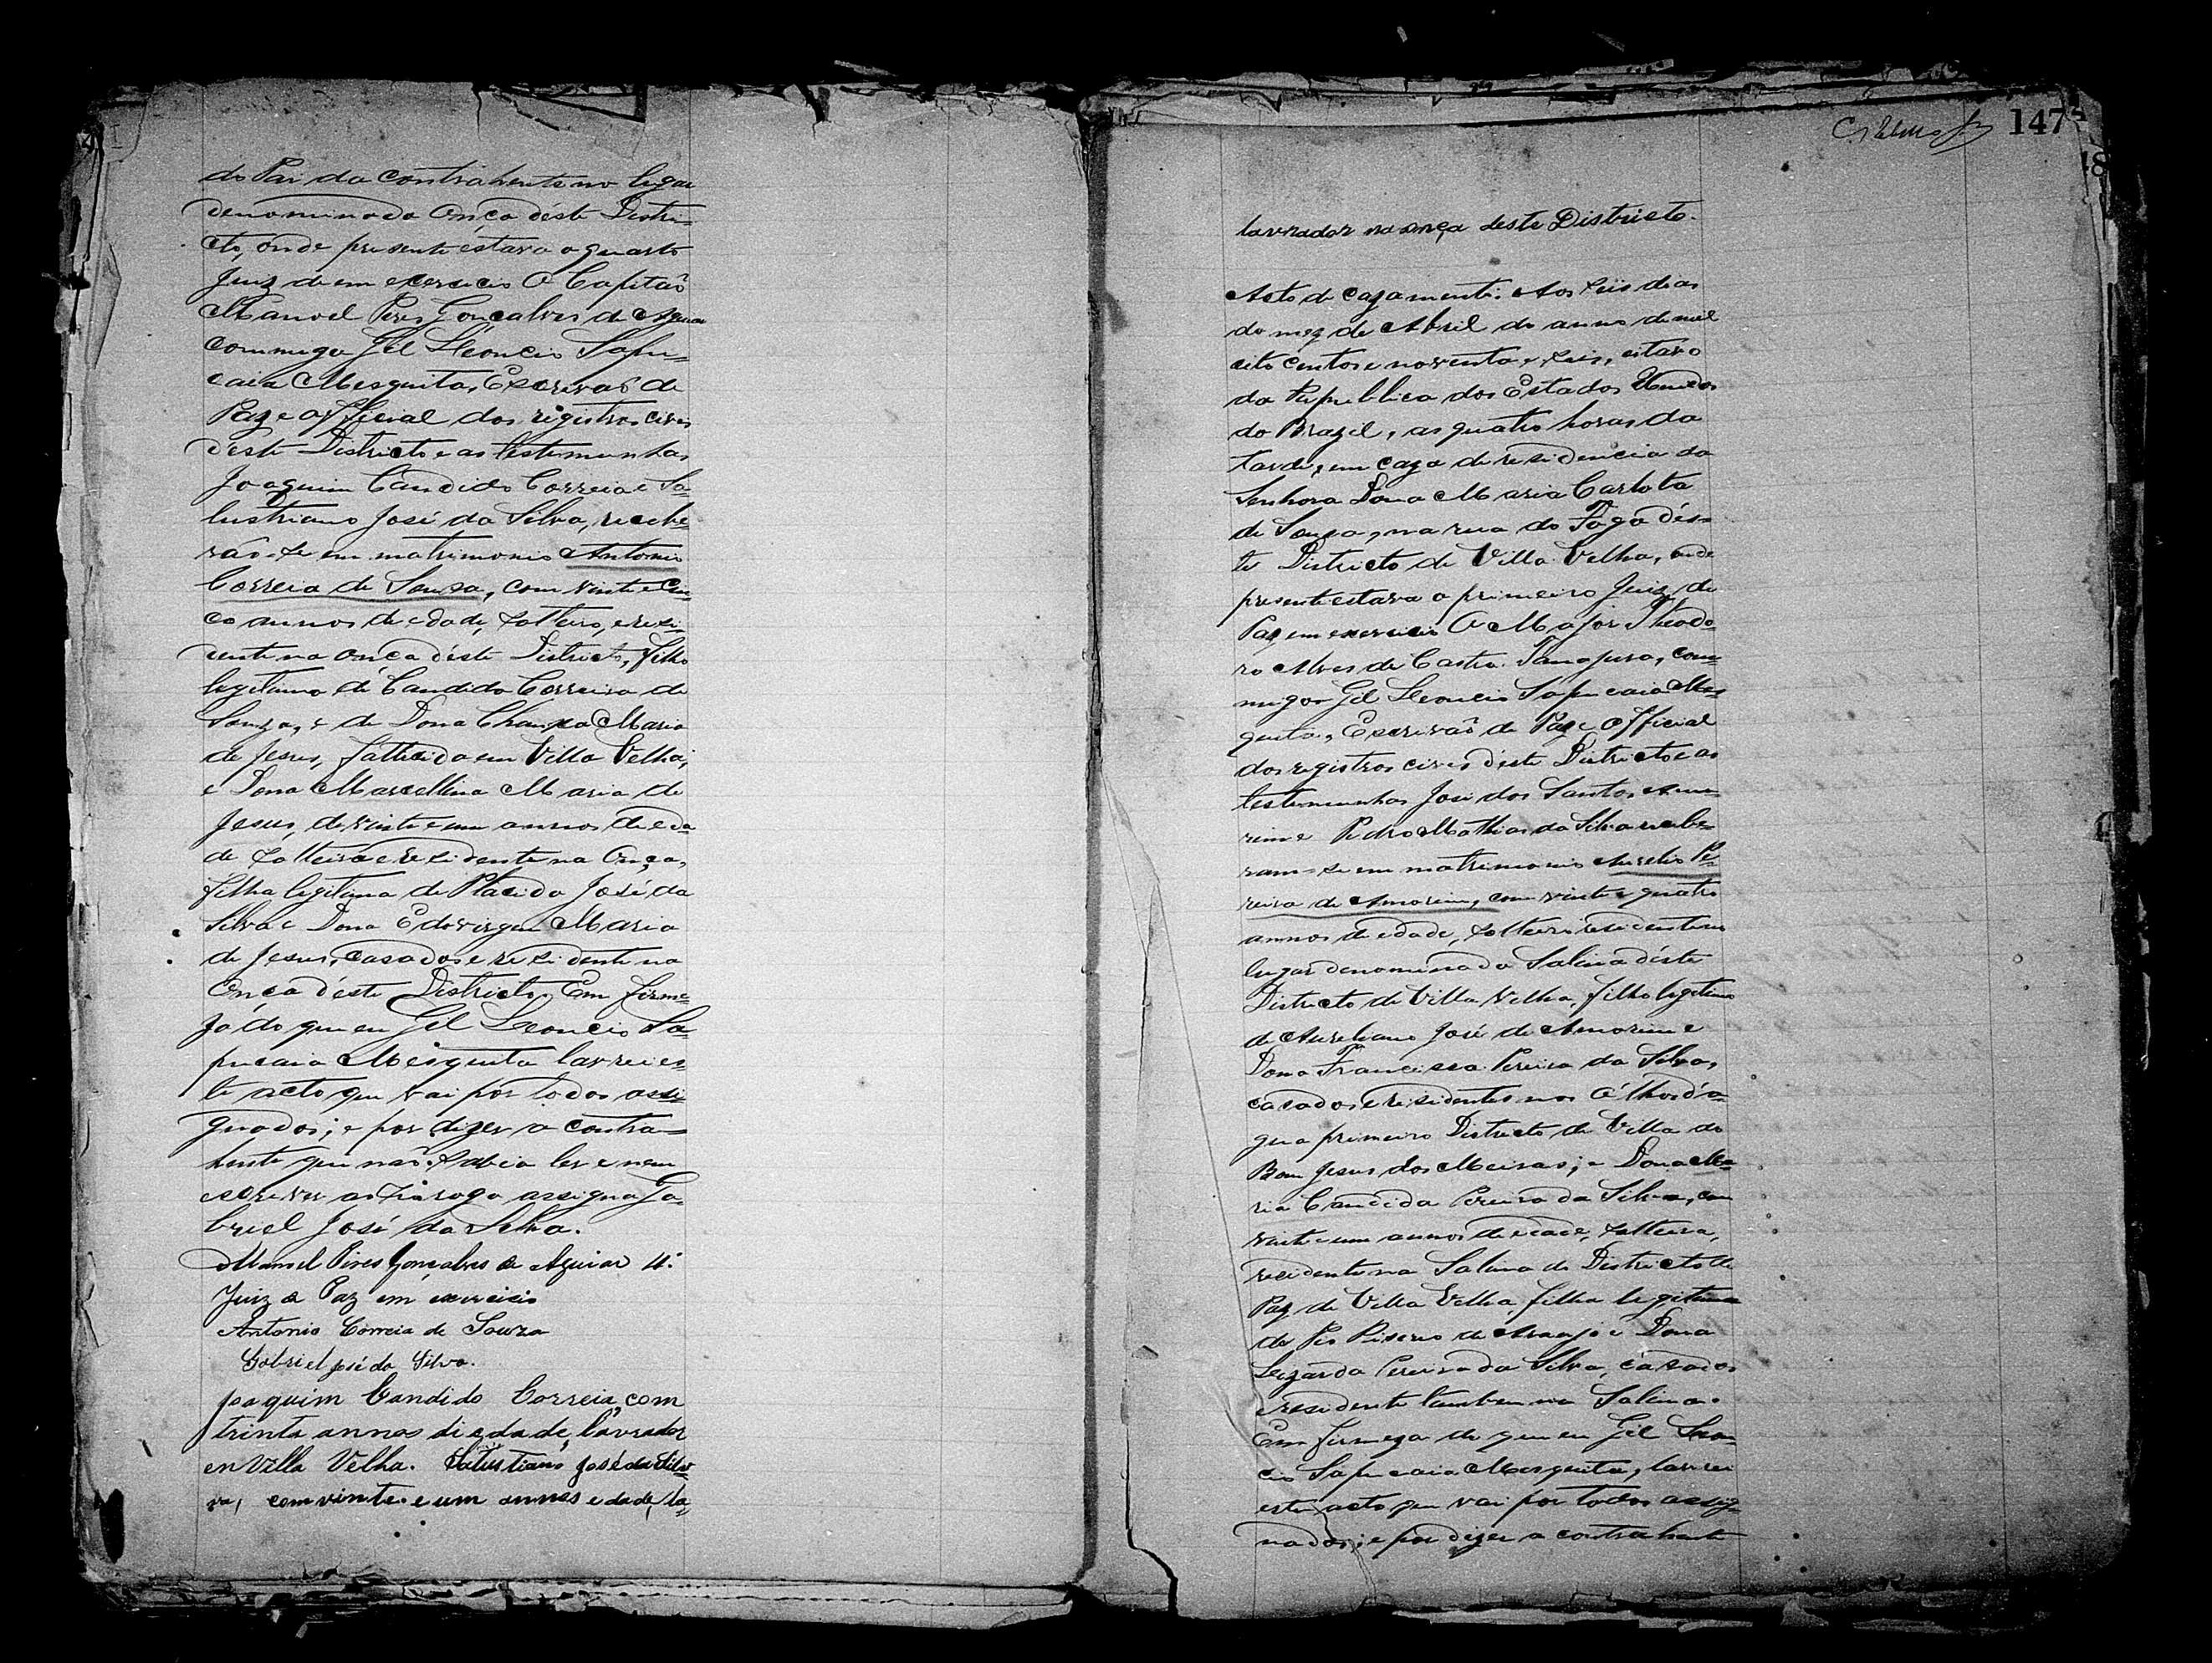 do Pai da contrahente no lugar
denominado Onça déste Distri-
cto, onde presente estava o quarto
Juiz de em exercicio O Capitaõ
Manoel Pires Gonçalves de Aguiar
commigo Gil Leoncio Sapu-
caia Mesquita, Escrivaõ de
Paz e official dos registros civis
déste Districto e as testemunhas
Joaquim Candido Correia e Sa-
lustriano José da Silva, recebe-
rão-se em matrimonio Antonio
Correia de Souza, com vinte e cin-
co annos de edade, solteiro, e resi-
dente na Onça déste Districto, filho
legitimo de Candido Correia de
Souza, e de Dona Maria
de Jesus, fallecida em Villa Velha,
e Dona Marcellina Maria de
Jesus, de vinte e um annos de eda-
de solteira e residente na Onça,
filha legitima de Placido José da
Silva e Dona Edovirgem Maria
de Jesus, casados e residente na
Onça déste Districto. Em firme-
za do que eu Gil Leoncio Sa-
pucaia Mesquita lavrei es-
te acto que vai por todos assi-
gnados; e por dizer a contra-
hente que naõ sabia ler e nem
escrever a seu rogo assigna Ga-
briel José da Silva.
Manoel Pires Gonçalves de Aguiar 4º
Juiz de Paz em exercicio
Antonio Correia de Souza
Gabriel José da Silva.
Joaquim Candido Correia, com
trinta annos di edade, lavrador
en Villa Velha. Salustiano José da Sil
va, com vinte e um annos edade, la-
147
lavrador na onça deste Districto.
Acto de cazamento. Aos seis dias
do mez de Abril do anno de mil
oito centos e noventa e seis, oitavo
da Republica dos Estados Unidos
do Brazil, as quatro horas da
tarde, em caza de residencia da
Senhora Dona Maria Carlota
de Souza, na rua do Fogo dés-
te Districto de Villa Velha, onde
presente estava o primeiro Juiz de
Paz em exercicio O Major Theodo-
ro Alves de Castro Tanajura, com-
migo Gil Leoncio Sapucaia Mes
quita, Escrivaõ de Paz e Official
dos registros civis déste Districto e as
testemunhas José dos Santos Amo-
rim e Pedro Mathias da Silva recebe-
ram-se em matrimonio Aurelio Pe-
reira de Amorim, com vinte e quatro
annos de edade, solteiro residente no
lugar denominado Salina déste
Districto de Villa Velha, filho legitimo
de Aureliano José de Amorim e
Dona Francisca Pereira da Silva,
casados e residentes nos Olhos d'a-
gua primeiro Districto de Villa do
Bom Jesus dos Meiras; e Dona Ma-
ria Candida Pereira da Silva, com
vinte e um annos de edade, solteira,
residente na Salina do Districto de
Paz de Villa Velha, filha legitima
de de Araujo e Dona
Lizarda Pereira da Silva, casados
e residente tambem na Salina.
Em firmeza do que eu Gil Leon-
cio Sapucaia Mesquita, lavrei
este acto que vai por todos assig-
nados; e por dizer a contrahente